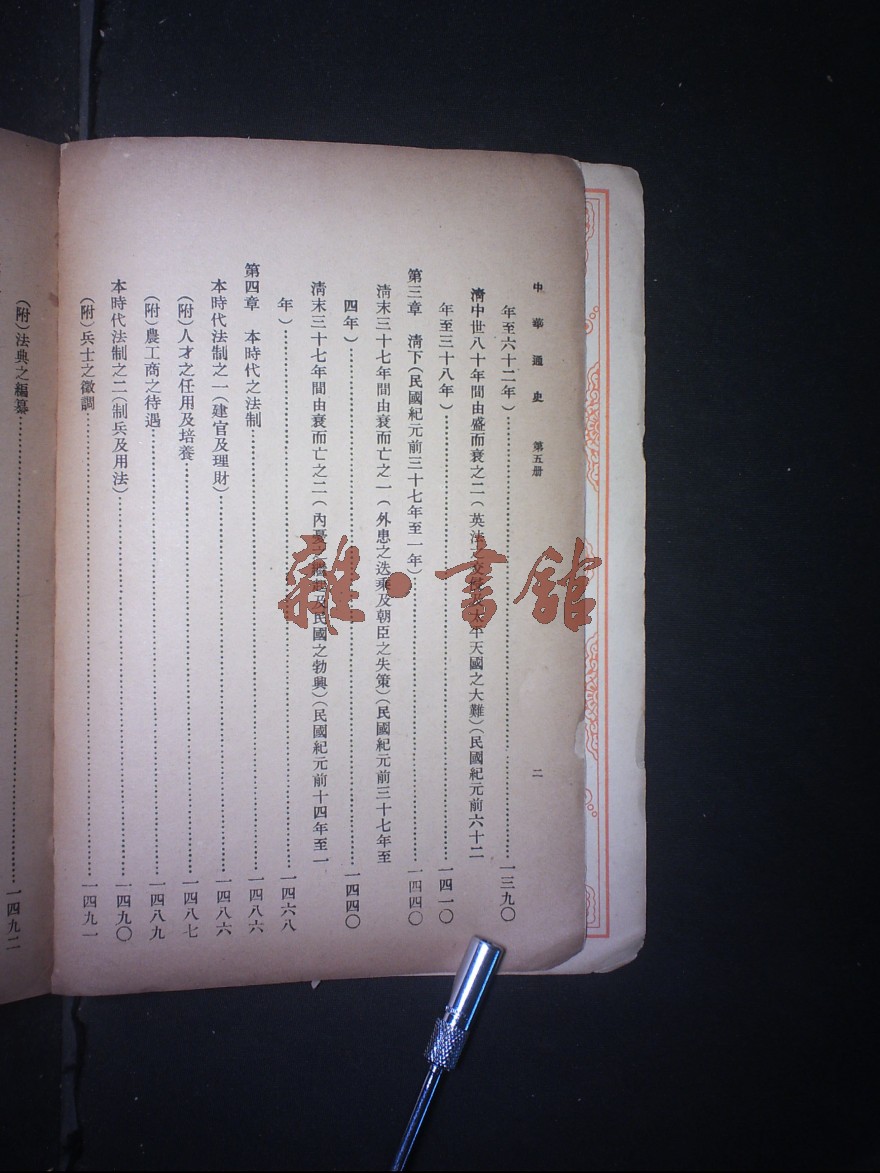 中華通史 第五册 二
年至六十二年)……一三九〇
清中世八十年間由盛而衰之二(英法之交
太平天國之大難)(民國紀元前六十二
年至三十八年)……一四一〇
第三章 清下(民國紀元前三十七年至一年)……一四四〇
清末三十七年間由衰而亡之一(外患之迭乘及朝臣之失策)(民國紀元前三十七年至
四年)……一四四〇
清末三十七年間由衰而亡之二(內憂之
及民國之勃興)(民國紀元前十四年至一
年)……一四六八
第四章 本時代之法制……一四八六
本時代法制之一(建官及理財)……一四八六
(附)人才之任用及培養……一四八七
(附)農工商之待遇……一四八九
本時代法制之二(制兵及用法)……一四九〇
(附)兵士之徵調……一四九一
(附)法典之編纂……一四九二
雜·書館